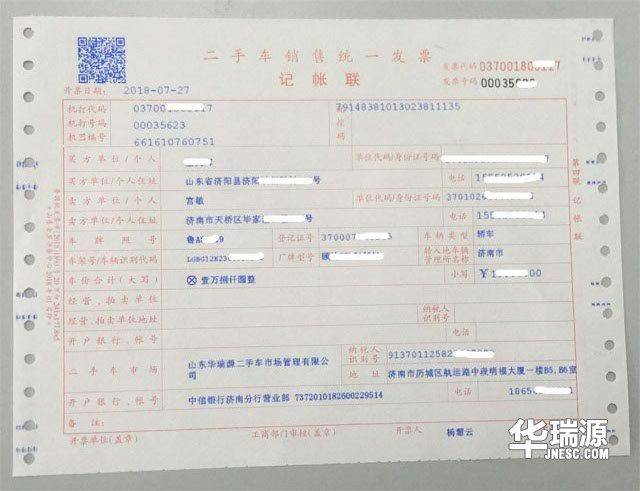 二手车销售统一发票
记帐联
发票代码 037001800117
发票号码 00035623
开票日期: 2018-07-27
机打代码 037001 117
机打号码 00035623
机器编号 661610760751
79148381013023811135
买方单位/个人 单位代码/身份证号码
买方单位/个人住址 山东省济阳县济阳 号 电话
卖方单位/个人 宫敏 单位代码/身份证号码 370102
卖方单位/个人住址 济南市天桥区毕家 号 电话
车牌照号 鲁A 9 登记证号 37000 车辆类型 轿车
车架号/车辆识别代码 LGBG12E23 厂牌型号 转入地车辆管理所名称 济南市
车价合计(大写) ⊗壹万捌仟圆整 小写 ¥1
经营、拍卖单位
经营、拍卖单位地址 纳税人识别号
开户银行、帐号 电话
二手车市场 山东华瑞源二手车市场管理有限公司 纳税人识别号 91370112582
地址 济南市历城区航运路中段明福大厦一楼B5,B6室
开户银行、帐号 中信银行济南分行营业部 7372010182600229514 电话 1865
备注:
开票单位(盖章) 工商部门审核(盖章) 开票人 杨慧云
第一联 记帐联
华瑞源
JNESC.COM